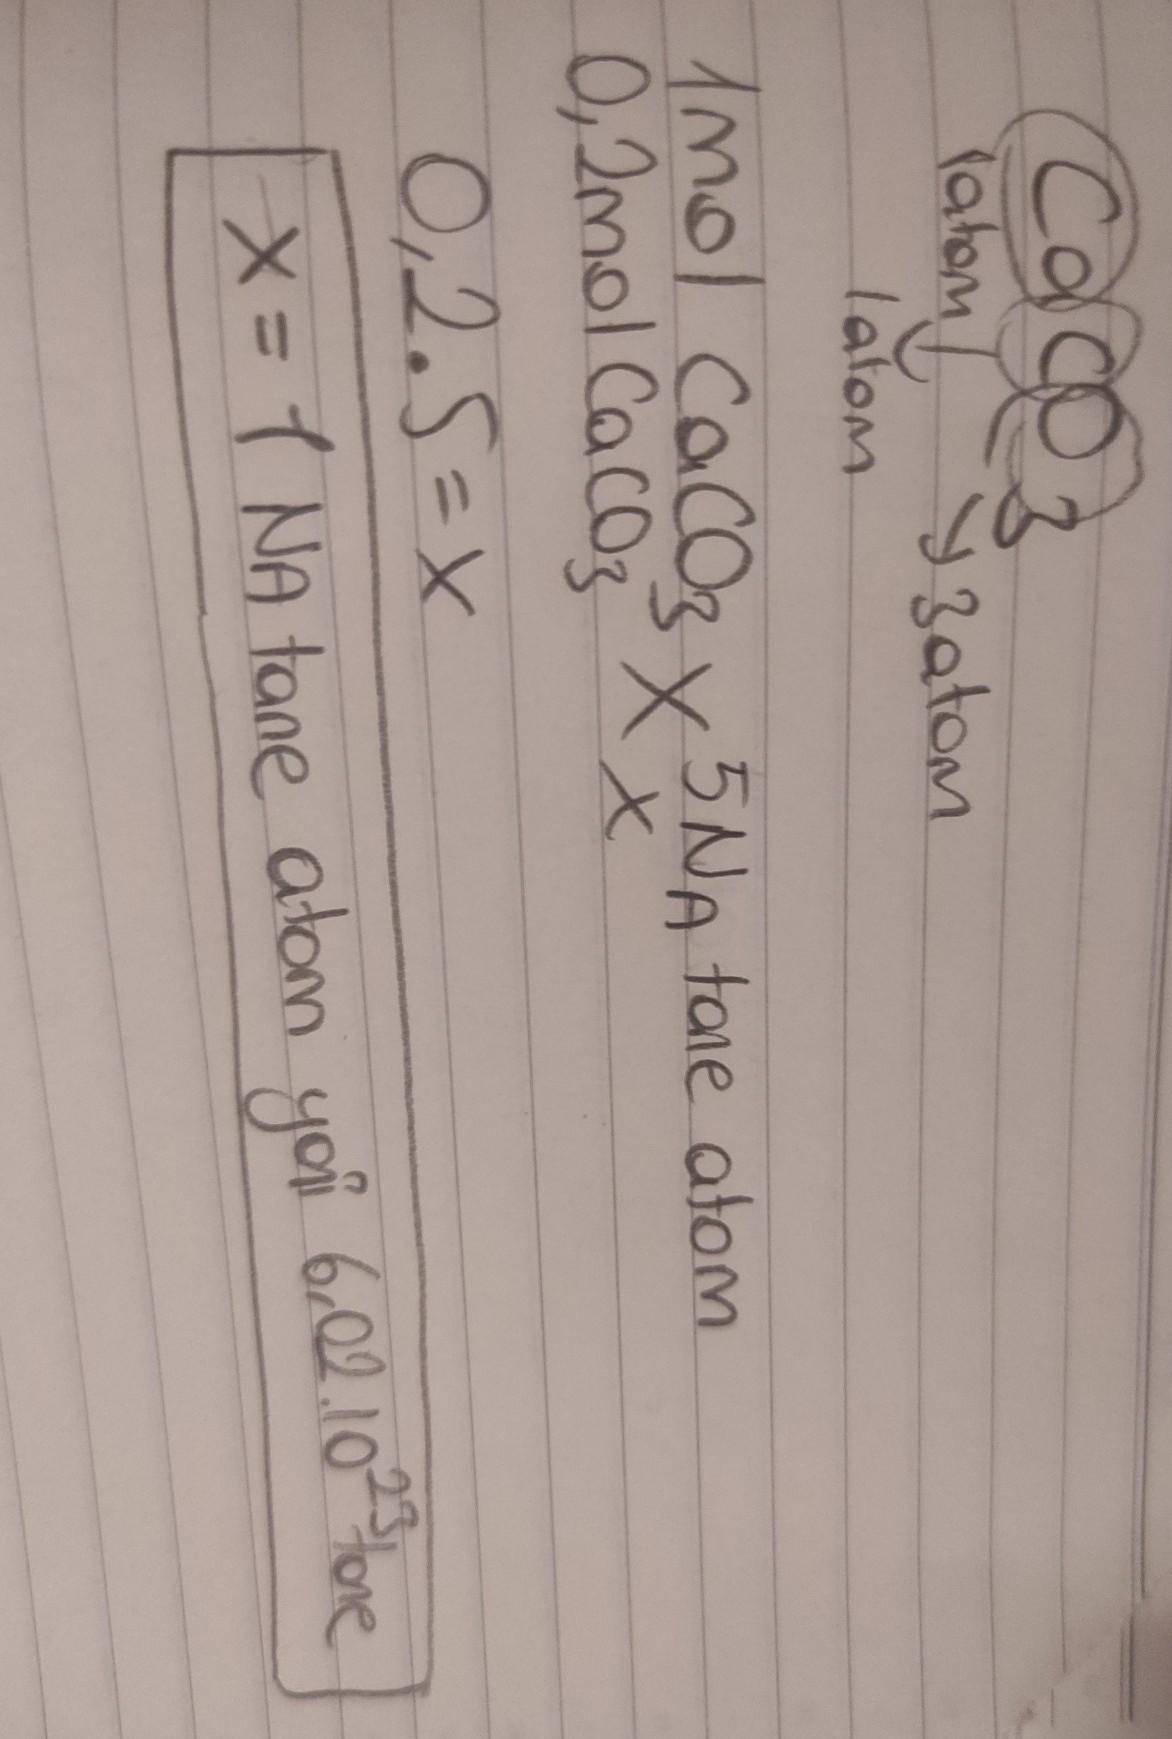 CaCO3
1atom
1atom
3atom
1mol CaCO3 X 5NA tane atom
0,2mol CaCO3 X
0,2.5=X
X=1 NA tane atom yani 6,02.10²³ tane